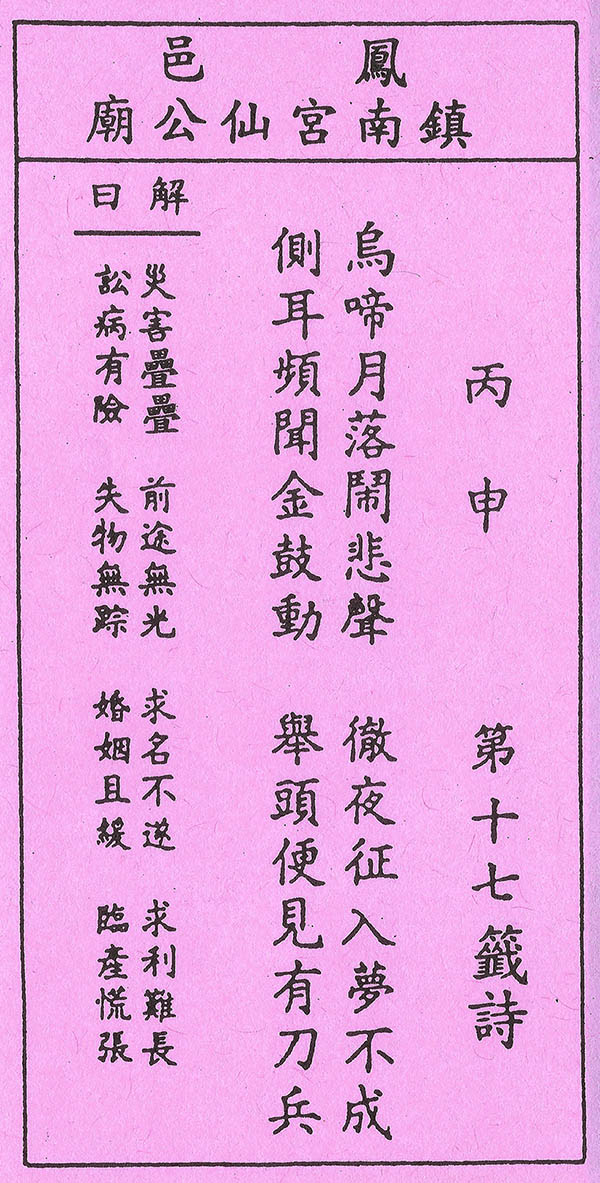 鳳邑
鎮南宮仙公廟
丙申 第十七籤詩
烏啼月落鬧悲聲 徹夜征入夢不成
側耳頻聞金鼓動 舉頭便見有刀兵
解曰
災害疊疊 前途無光 求名不遂 求利難長
訟病有險 失物無踪 婚姻且緩 臨產慌張